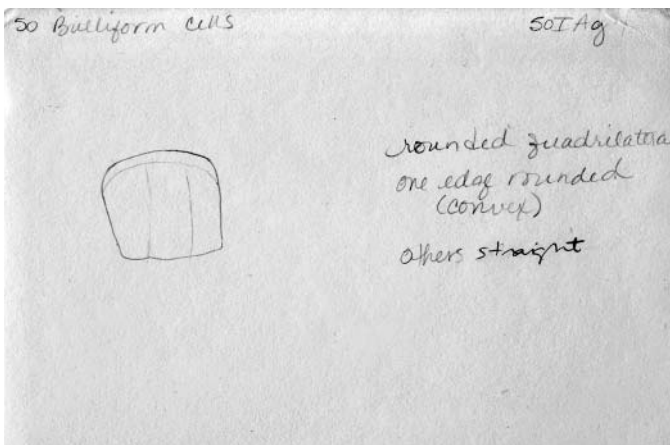 50 Bulliform cells
50I Ag
rounded quadrilatera
one edge rounded
(convex)
others straight